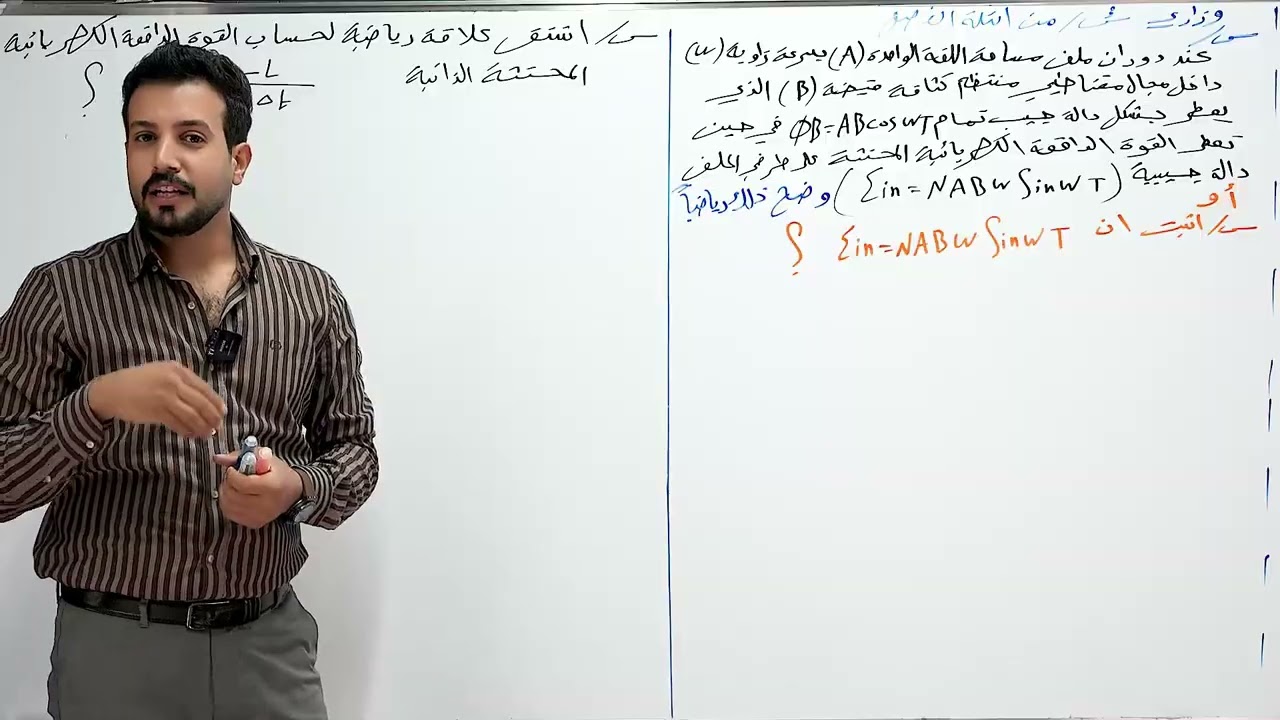 وزاري / من اسئلة الفصل
س/
عند دوران ملف مساحة اللفة الواحدة (A) بسرعة زاوية (w)
داخل مجال مغناطيسي منتظم كثافة فيضه (B) الذي
يعطى بشكل دالة جيب تمام ΦB=ABcosWT في حين
تعطى القوة الدافعة الكهربائية المحتثة على طرفي الملف
دالة جيبية (Ɛin=NABW SinWT) وضح ذلك رياضياً
أو
س/ اثبت ان Ɛin=NABW SinWT ؟
س/ اشتق علاقة رياضية لحساب القوة الدافعة الكهربائية
المحتثة الذاتية
-L
Δt
؟